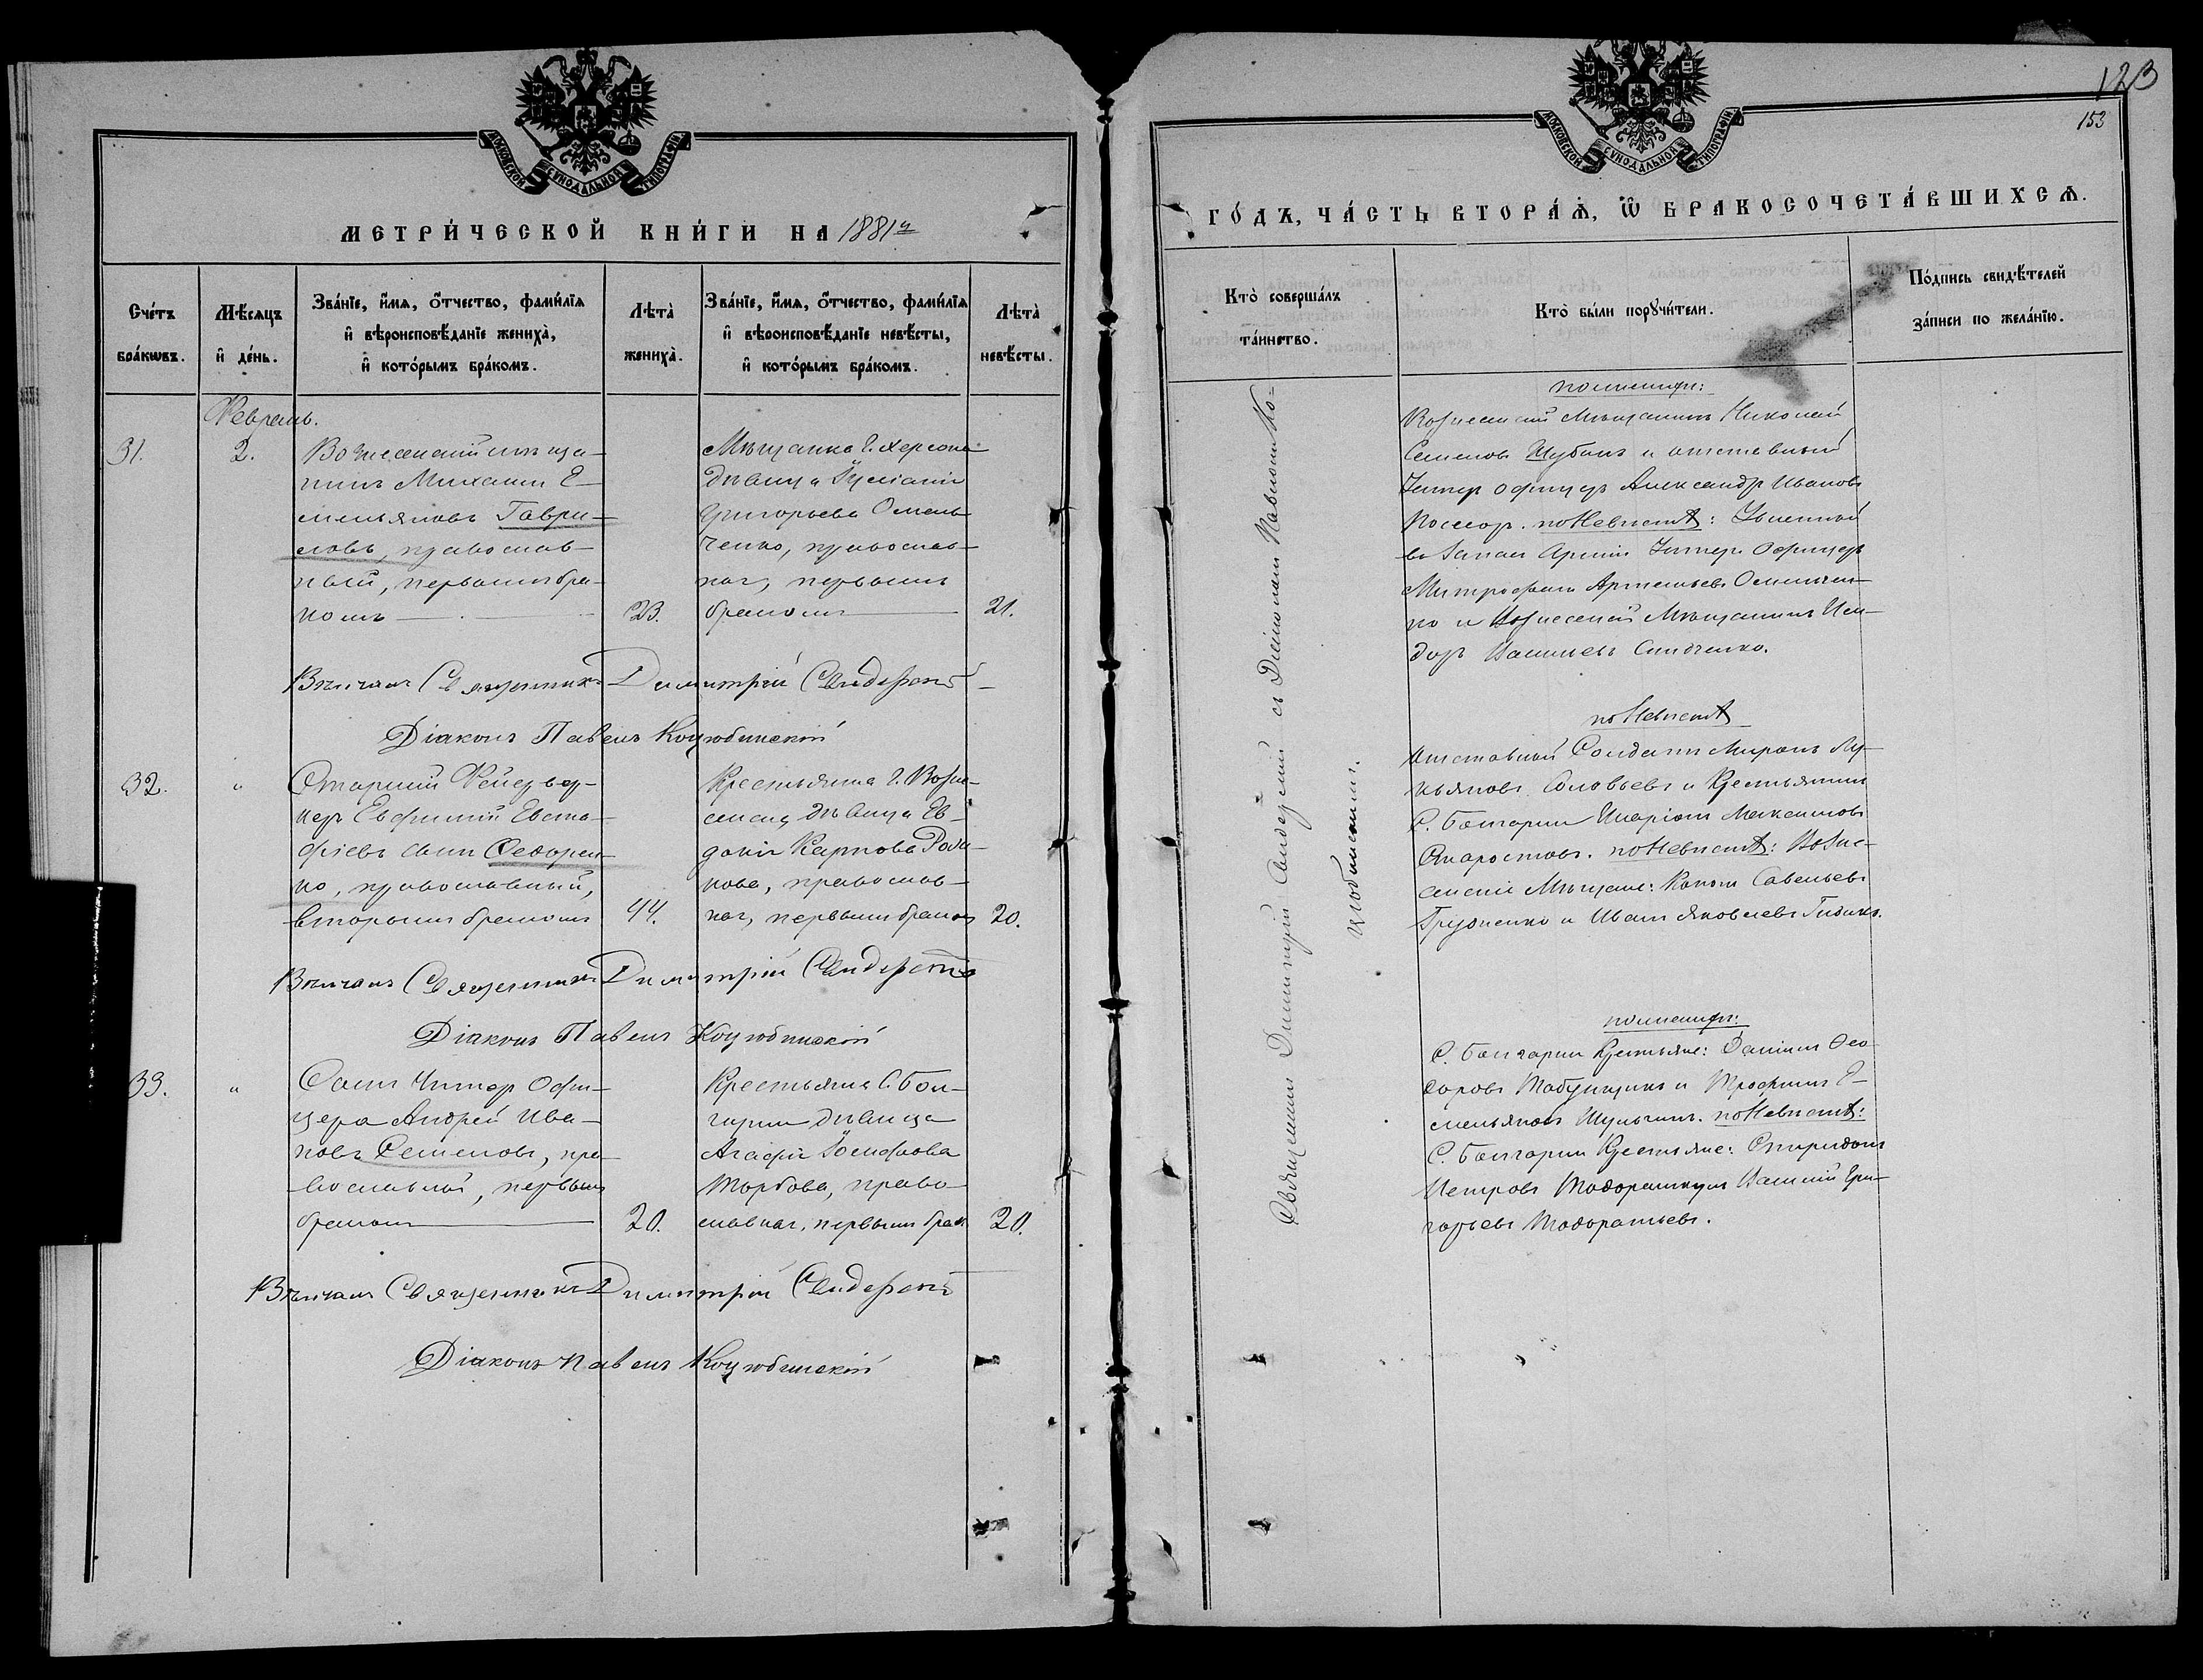 123
153
МОСКОВСКОЙ СѴНОДАЛЬНОЙ ТИПОГРАФІИ
МЕТРИ́ЧЕСКОЙ КНИ́ГИ НА 1881й
Сче́тъ бра́кωвъ.
Мѣ́сяцъ и҆ де́нь.
Зва́нїе, и҆́мѧ, о҆́тчество, фами́лїѧ
и҆ вѣроисповѣ́данїе жениха̀,
и҆ кото́рымъ бра́комъ.
Лѣ́та̀ жениха̀.
Зва́нїе, и҆́мѧ, о҆́тчество, фами́лїѧ
и҆ вѣроисповѣ́данїе невѣ́сты,
и҆ кото́рымъ бра́комъ.
Лѣ́та̀ невѣ́сты.
Февраль.
31.
2.
Вознесенскій мѣща-
нинъ Михаилъ Е-
мельяновъ Гаври-
ловъ, православ-
ный, первымъ бра-
комъ
23.
Мѣщанка г. Херсона
дѣвица Іуліанія
Григорьева Омель
ченко, православ-
ная, первымъ
бракомъ
21.
Вѣнчалъ Священникъ Димитрій
Діаконъ Павелъ Коцюбинскій
32.
"
Старшій Фейервер-
керъ Евфимій Евста-
фіевъ сынъ Федорен-
ко, православный,
вторымъ бракомъ
44.
Крестьянка г. Возне-
сенска, дѣвица Ев-
докія Карпова
православ-
ная, первымъ бракомъ
20.
Вѣнчалъ Священникъ Димитрій
Діаконъ Павелъ Коцюбинскій
33.
"
Сынъ Унтеръ Офи-
цера Андрей Ива-
новъ Семеновъ, пра-
вославный, первымъ
бракомъ
20.
Крестьянка С. Бол-
гарки дѣвица
Агафія Іосифова
Торбова, право-
славная, первымъ брак.
20.
Вѣнчалъ Священникъ Димитрій
Діаконъ Павелъ Коцюбинскій
МОСКОВСКОЙ СѴНОДАЛЬНОЙ ТИПОГРАФІИ
ГО́ДЪ, ЧА́СТЬ ВТОРА́Ѧ, Ѽ БРАКОСОЧЕТА́ВШИХСѦ.
Кто̀ соверша́лъ
та́инство.
Кто̀ бы́ли порꙋчи́тели.
По́дпись свидѣ́телей
за́писи по жела́нїю.
Священникъ Димитрій съ Діакономъ Павломъ Ко-
цюбинскимъ.
по женихѣ:
Вознесенскій Мѣщанинъ Николай
Семеновъ Шубинъ и отставный
Унтеръ офицеръ Александръ Ивановъ
по Невѣстѣ: Уволенный
въ запасъ Арміи Унтеръ Офицеръ
Митрофанъ Артемьевъ Омельчен-
ко и Вознесенскій Мѣщанинъ Иси-
доръ Васильевъ
по Невѣстѣ
отставный Солдатъ Миронъ Лу-
кьяновъ Соловьевъ и Крестьянинъ
С. Болгарки Максимовъ
Старостовъ. по Невѣстѣ: Возне-
сенскіе Мѣщане: Савельевъ
и Иванъ Яковлевъ
по женихѣ:
С. Болгарки Крестьяне: Даніилъ Ѳео-
доровъ Табунщикъ и Трофимъ Е-
мельяновъ Шульгинъ. по Невѣстѣ:
С. Болгарки Крестьяне: Спиридонъ
Петровъ Василій Гри-
горьевъ